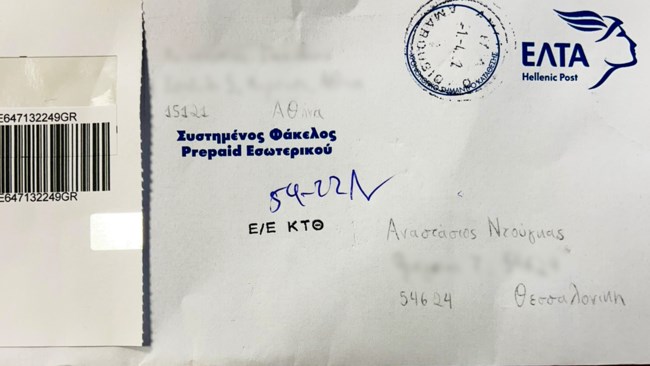 E647132249GR
E647132249GR
15121 Αθήνα
Συστημένος Φάκελος
Prepaid Εσωτερικού
54-22Ν
Ε/Ε ΚΤΘ
ΕΛΤΑ
Hellenic Post
Αναστάσιος Ντούγκας
54624 Θεσσαλονίκη